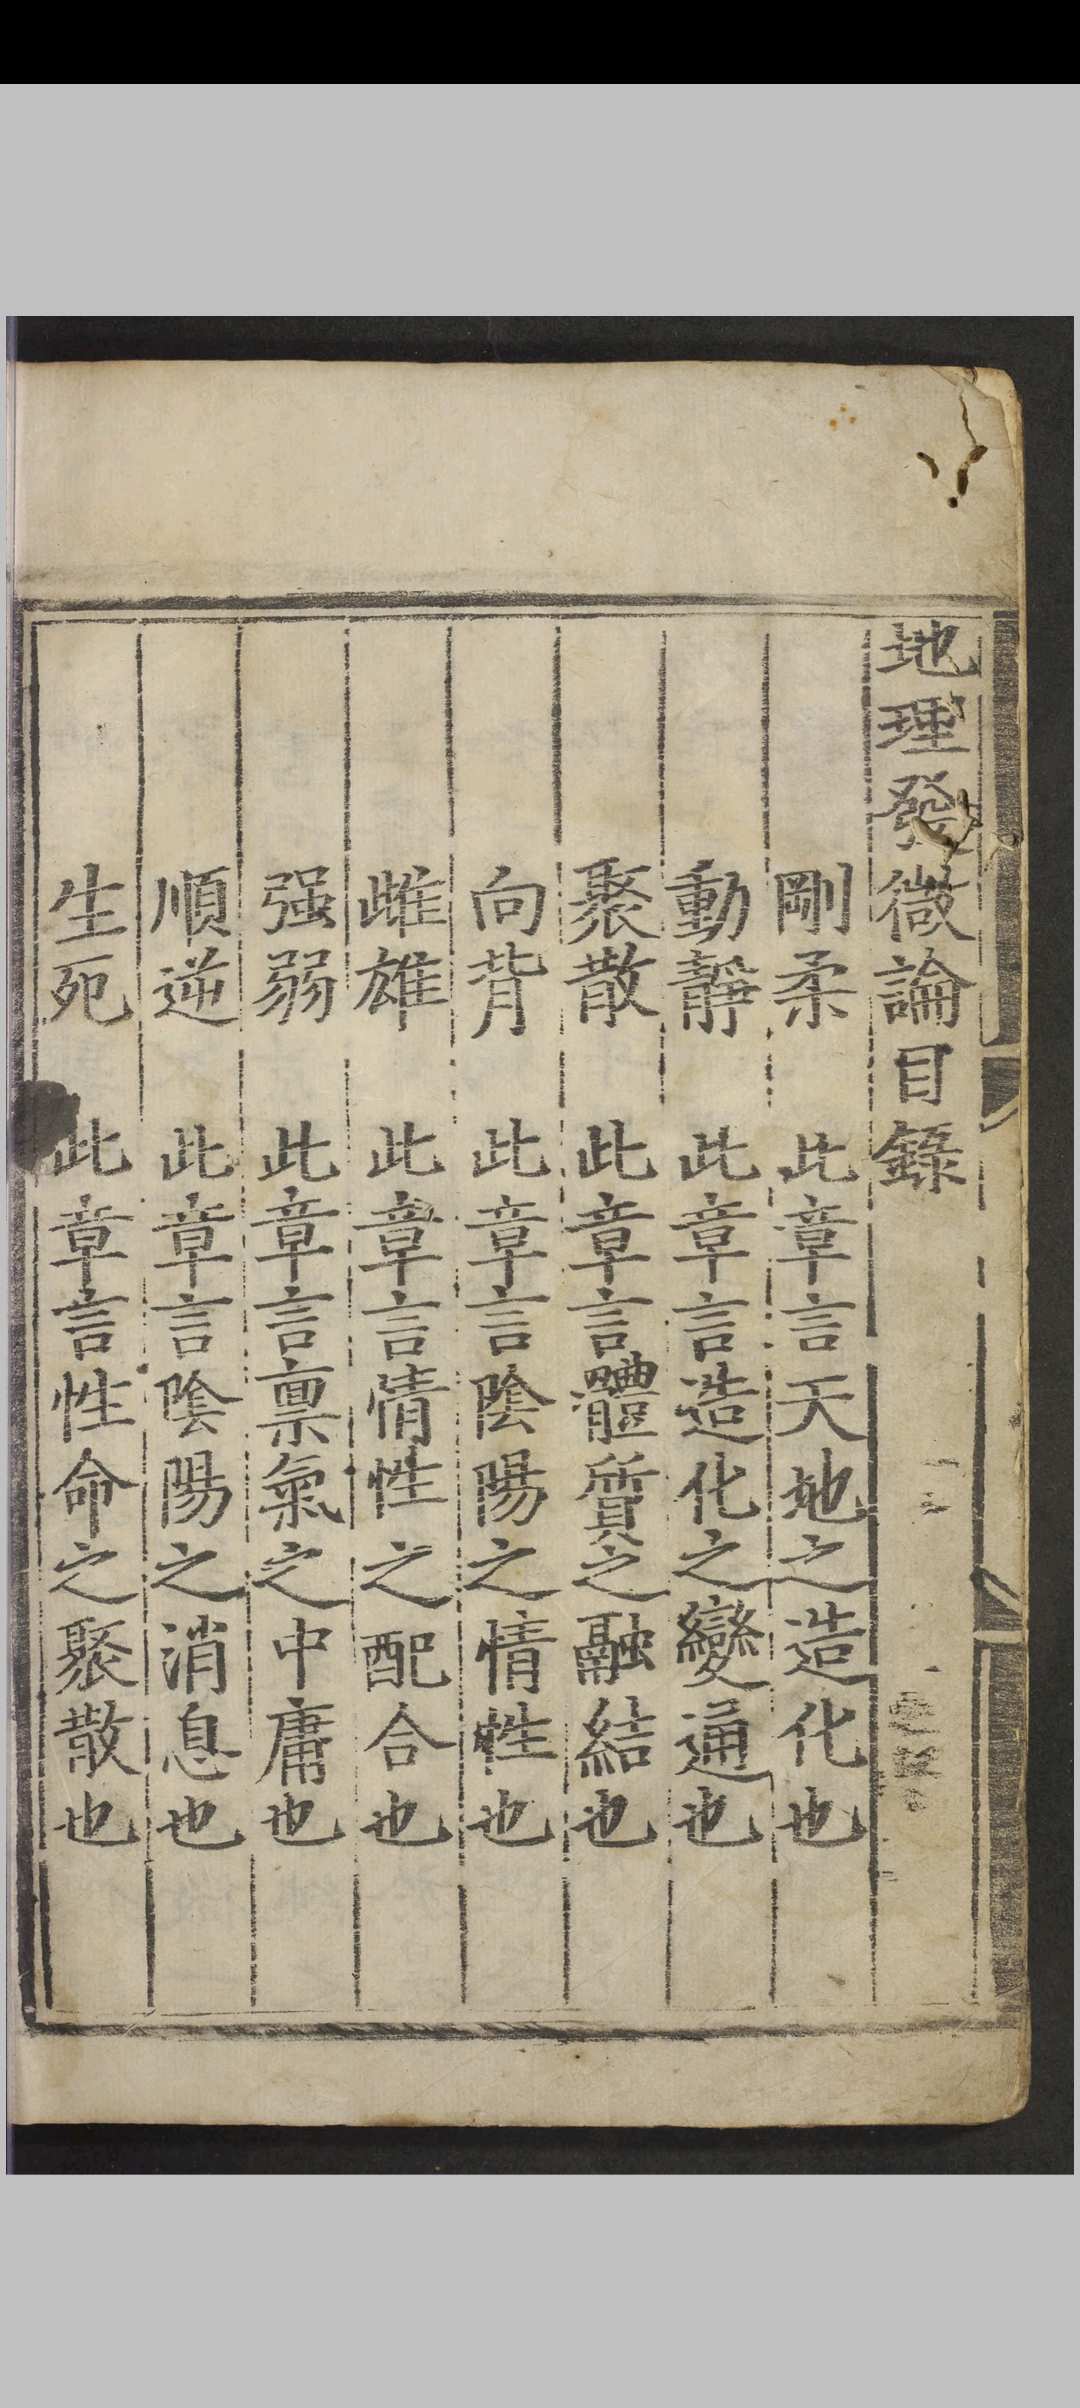 地理發微論目錄
剛柔 此章言天地之造化也
動靜 此章言造化之變通也
聚散 此章言體質之融結也
向背 此章言陰陽之情性也
雌雄 此章言情性之配合也
强弱 此章言禀氣之中庸也
順逆 此章言陰陽之消息也
生死 此章言性命之聚散也